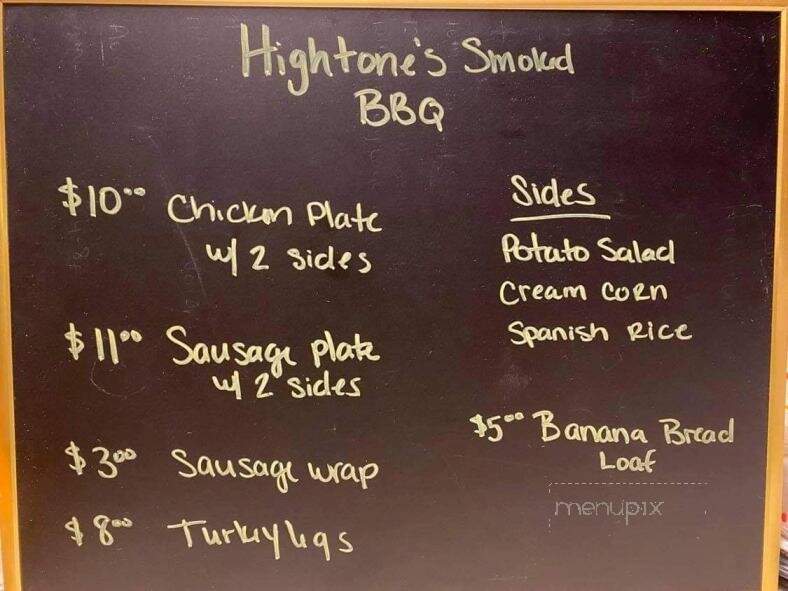 Hightone's Smoked
BBQ
$10.00 Chicken Plate
w/ 2 sides
$11.00 Sausage plate
w/ 2 sides
$3.00 Sausage wrap
$8.00 Turkey legs
Sides
Potato Salad
Cream Corn
Spanish Rice
$5.00 Banana Bread
Loaf
menupix